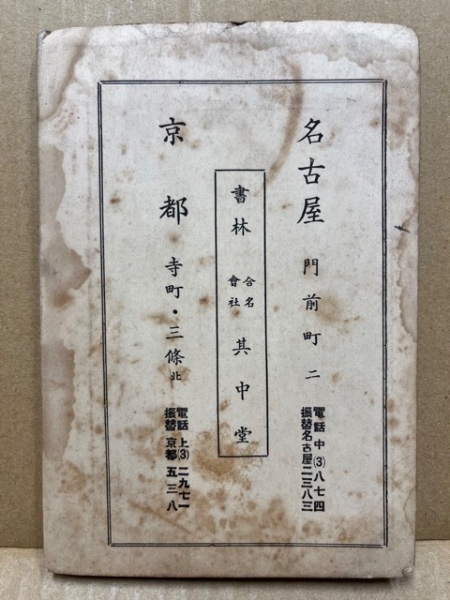 名古屋 門前町二
電話 中(3)八七四
振替名古屋二三八三
書林 合名會社 其中堂
京都 寺町・三條北
電話 上(3)二九七一
振替 京都 五三八